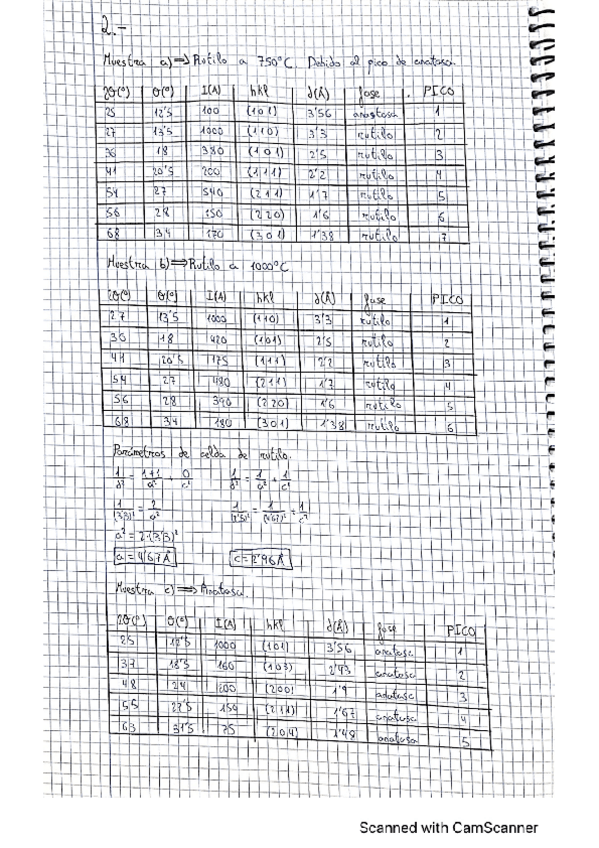 2.-
Muestra a) ⇒ Rutilo a 750°C. Debido al pico de anatasa.
2θ(°) θ(°) I(A) hkl d(Å) fase PICO
25 12'5 100 (101) 3'56 anastasa 1
27 13'5 1000 (110) 3'3 rutilo 2
36 18 380 (101) 2'5 rutilo 3
41 20'5 200 (111) 2'2 rutilo 4
54 27 540 (211) 1'7 rutilo 5
56 28 150 (220) 1'6 rutilo 6
68 34 170 (301) 1'38 rutilo 7
Muestra b) ⇒ Rutilo a 1000°C
2θ(°) θ(°) I(A) hkl d(Å) fase PICO
27 13'5 1000 (110) 3'3 rutilo 1
36 18 420 (101) 2'5 rutilo 2
41 20'5 175 (111) 2'2 rutilo 3
54 27 480 (211) 1'7 rutilo 4
56 28 390 (220) 1'6 rutilo 5
68 34 180 (301) 1'38 rutilo 6
Parámetros de celda de rutilo.
1/d² = 1+1/a² + 0/c² 1/d² = 1/a² + 1/c²
1/(3'3)² = 2/a² 1/(2'5)² = 1/(4'67)² + 1/c²
a² = 2·(3'3)²
a = 4'67 Å c = 2'96 Å
Muestra c) ⇒ Anatasa.
2θ(°) θ(°) I(A) hkl d(Å) fase PICO
25 12'5 1000 (101) 3'56 anatasa 1
37 18'5 160 (103) 2'43 anatasa 2
48 24 200 (200) 1'9 anatasa 3
55 27'5 150 (211) 1'67 anatasa 4
63 31'5 75 (204) 1'48 anatasa 5
Scanned with CamScanner